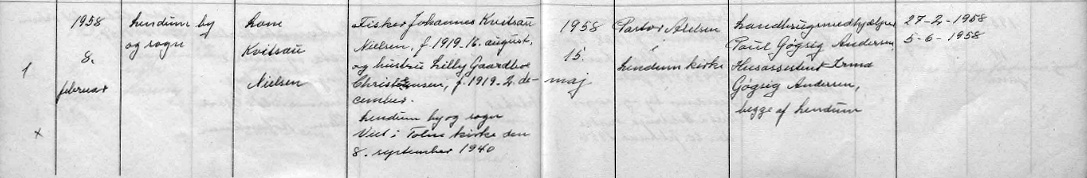 1
1958
8.
februar
x
Lendum by
og sogn
Lone
Kvitsau
Nielsen
Fisker Johannes Kvitsau
Nielsen, f. 1919. 16. august,
og hustru Lilly Gaardbo
Christensen, f. 1919. 2. de-
cember.
Lendum by og sogn
Viet i Tolne kirke den
8. september 1940
1958
15.
maj
Pastor
Lendum kirke
Landbrugsmedhjælper
Poul Gøgsig Andersen
Husassistent Erna
Gøgsig Andersen,
begge af Lendum
27-2-1958
5-6-1958